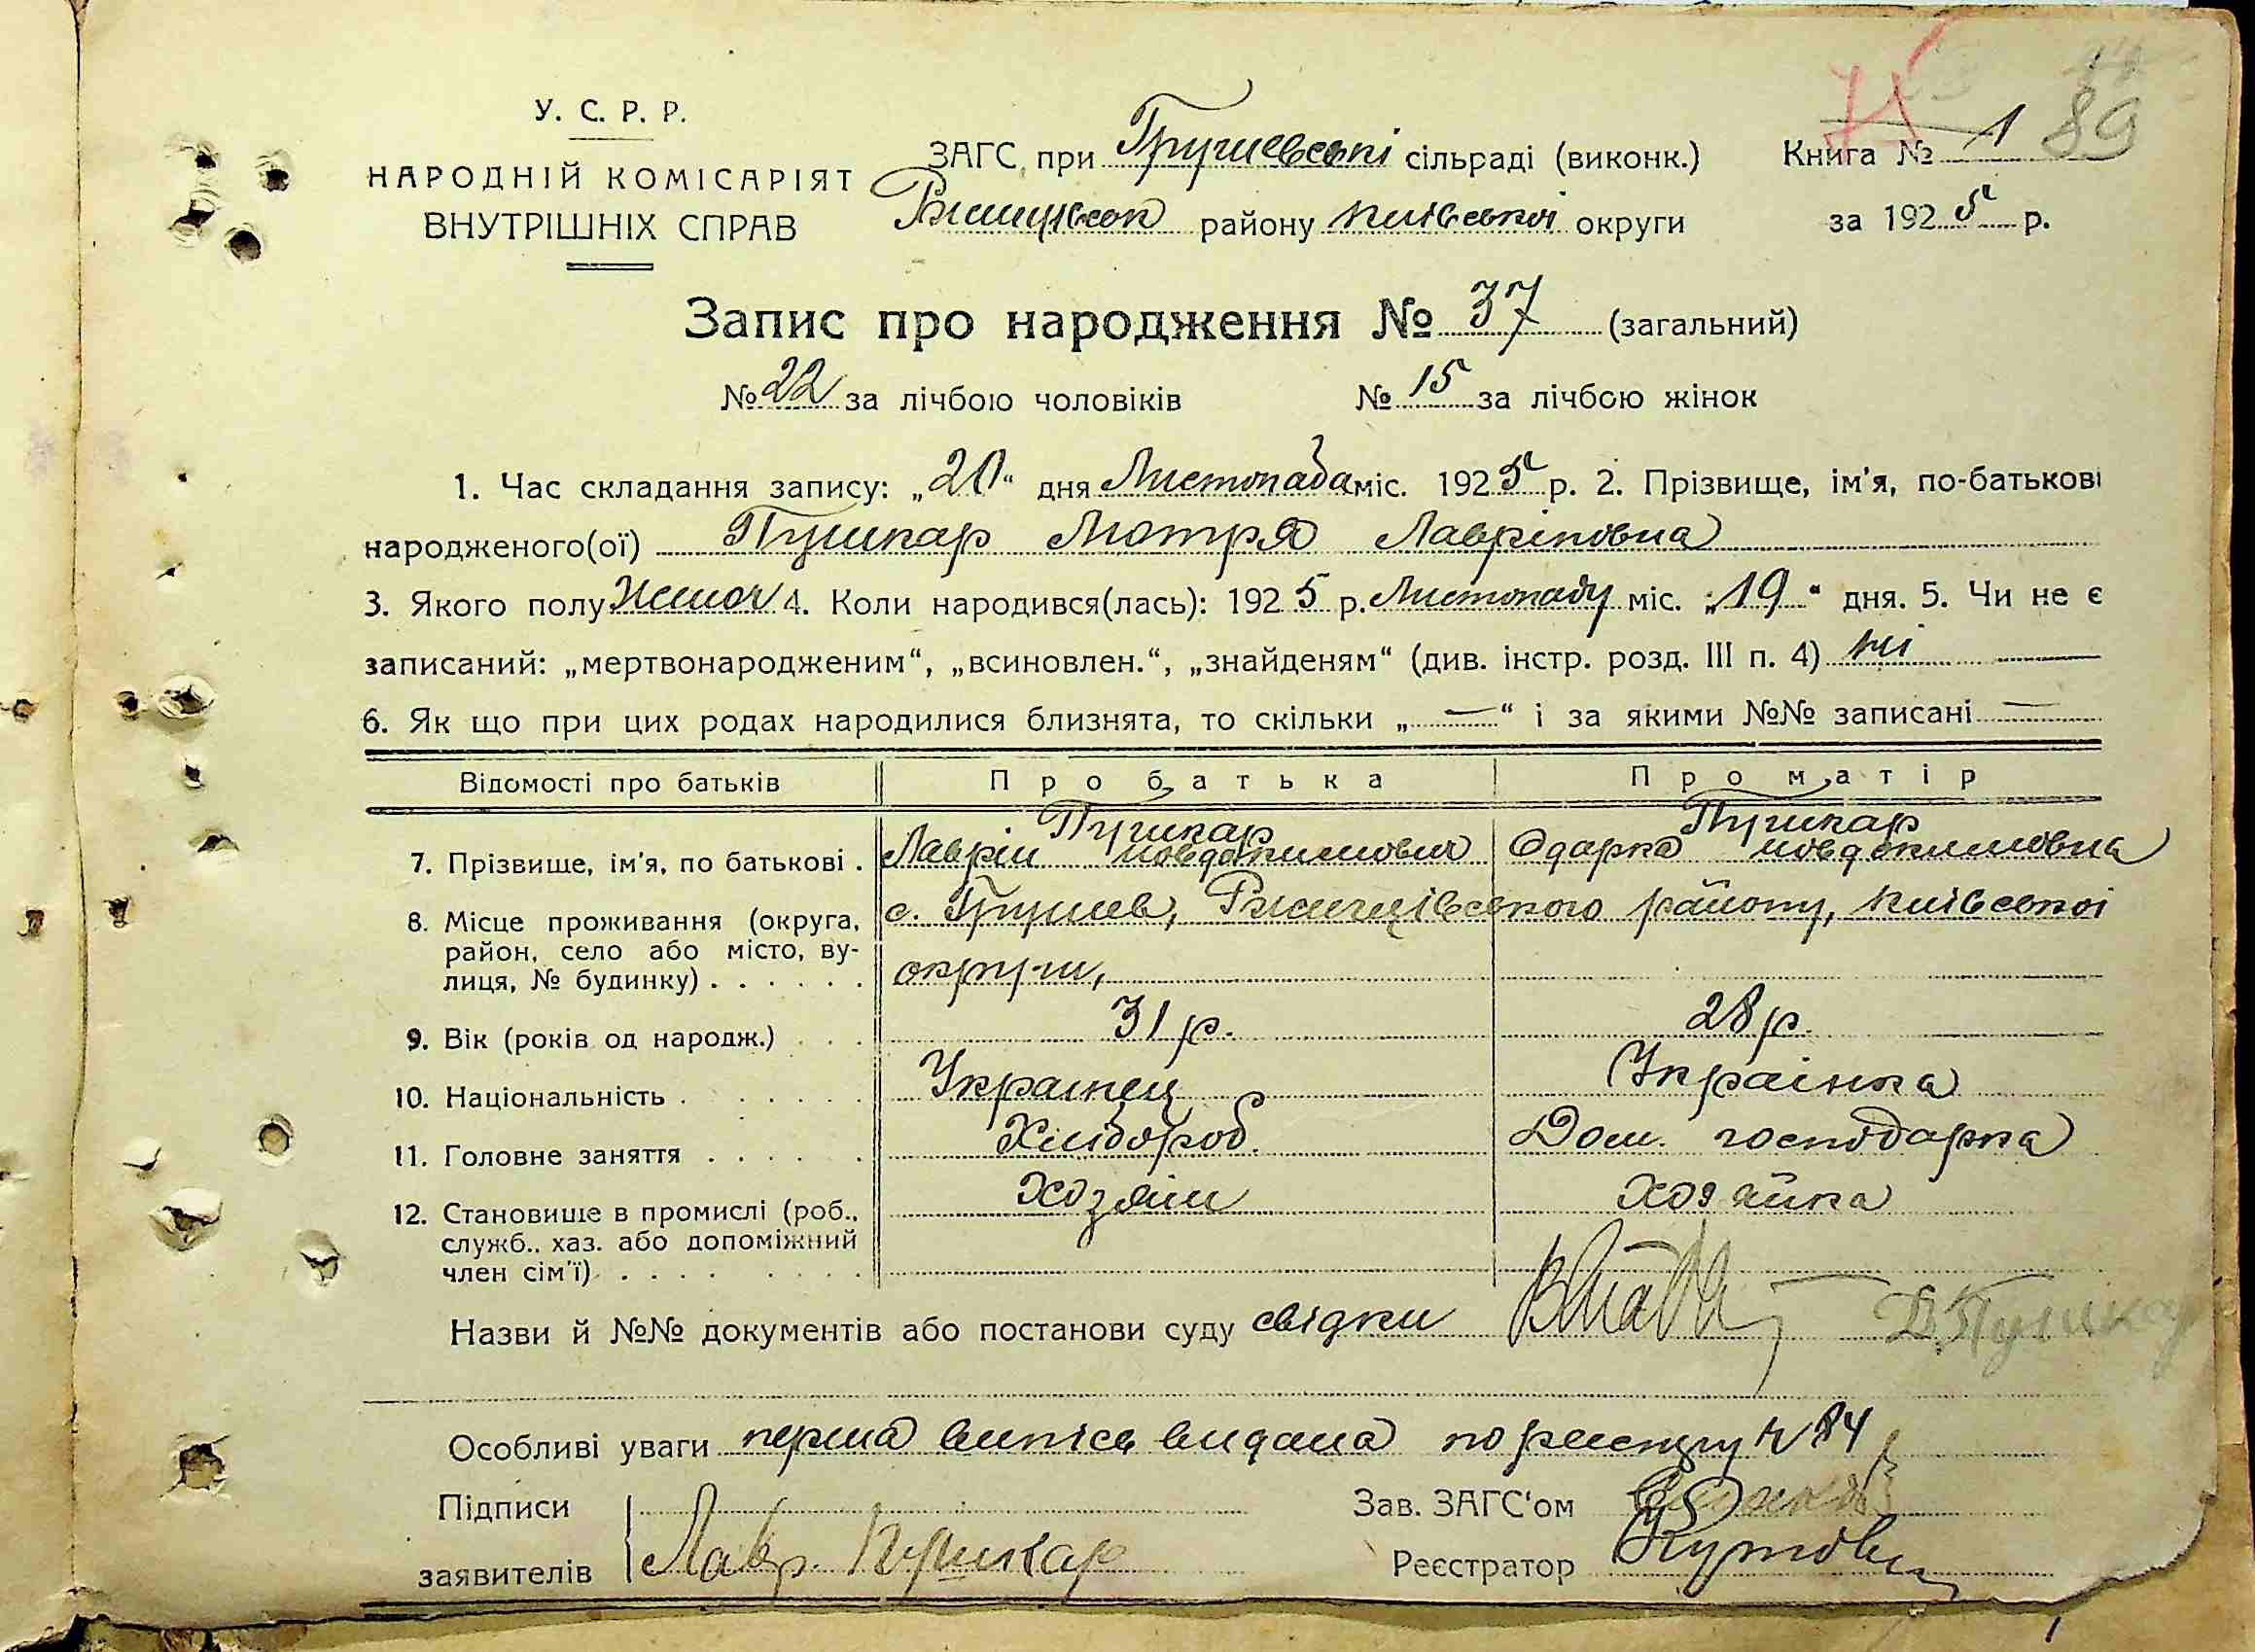 89
У. С. Р. Р.
НАРОДНІЙ КОМІСАРІЯТ
ВНУТРІШНІХ СПРАВ
ЗАГС при Грушевські сільраді (виконк.)
Ржищівськ району Київської округи
Книга № 1
за 1925 р.
Запис про народження № 37 (загальний)
№ 22 за лічбою чоловіків № 15 за лічбою жінок
1. Час складання запису: „20“ дня Листопада міс. 1925 р. 2. Прізвище, ім'я, по-батькові
народженого(ої) Пушкар Мотря Лавріновна
3. Якого полу Жіноч 4. Коли народився(лась): 1925 р. Листопаду міс. „19“ дня. 5. Чи не є
записаний: „мертвонародженим“, „всиновлен.“, „знайденям“ (див. інстр. розд. III п. 4) ні
6. Як що при цих родах народилися близнята, то скільки „—“ і за якими №№ записані —
Відомості про батьків Про батька Про матір
7. Прізвище, ім'я, по батькові . Пушкар Пушкар
Лаврін Йовдокимович Одарка Йовдокимовна
8. Місце проживання (округа, с. Грушев, Ржищівського району, Київської
район, село або місто, ву-
лиця, № будинку) . . . . . . округи,
9. Вік (років од народж.) . . . 31 р. 28 р.
10. Національність . . . . . . Украінец Украінка
11. Головне заняття . . . . . Хлібороб. Дом. господарка
12. Становище в промислі (роб., Хозяін Хозяйка
служб., хаз. або допоміжний
член сім'ї) . . . . . . . .
Назви й №№ документів або постанови суду свідки Д. Пушкар
Особливі уваги перша випісь видана по реестру № 84
Підписи
заявителів Лавр. Пушкар
Зав. ЗАГС'ом
Реєстратор